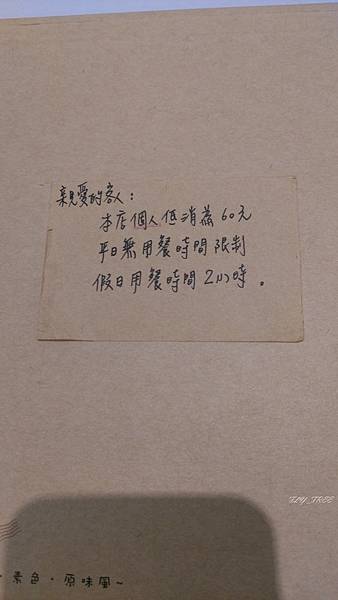 親愛的客人：
本店個人低消為60元
平日無用餐時間限制
假日用餐時間2小時。
FLY_FREE
素色・原味風~